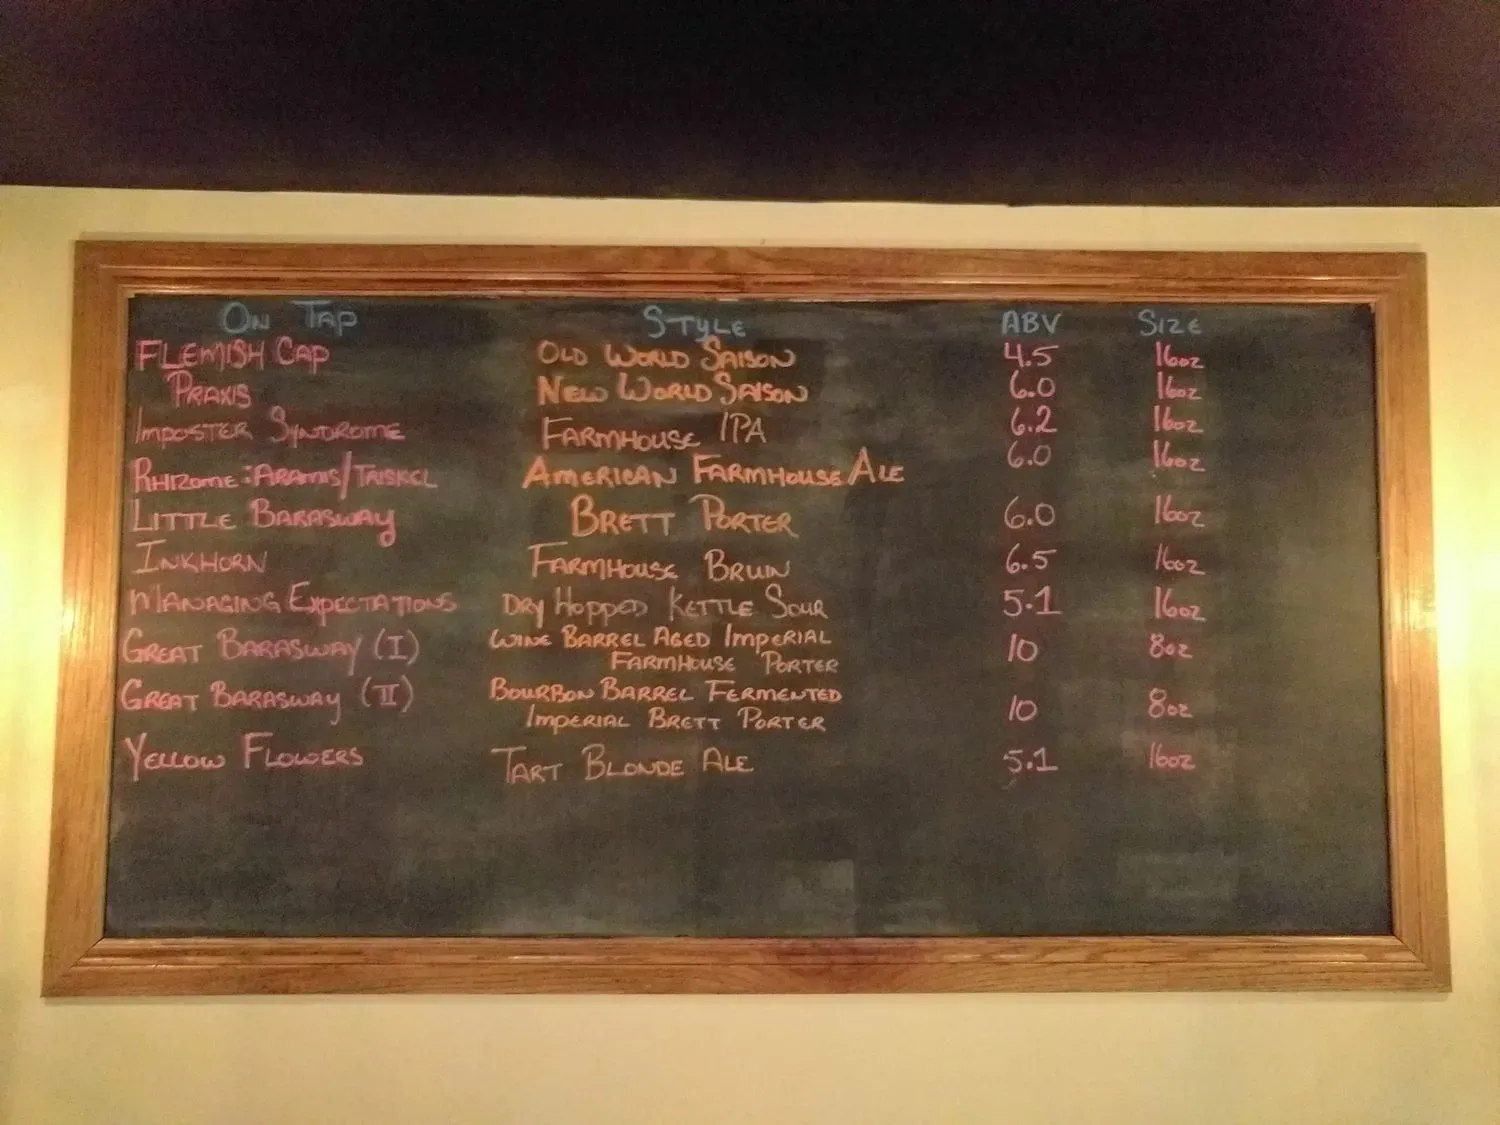 On Tap Style ABV Size
Flemish Cap Old World Saison 4.5 16oz
Praxis New World Saison 6.0 16oz
Imposter Syndrome Farmhouse IPA 6.2 16oz
Rhizome: Aramis/Triskel American Farmhouse Ale 6.0 16oz
Little Barasway Brett Porter 6.0 16oz
Inkhorn Farmhouse Bruin 6.5 16oz
Managing Expectations Dry Hopped Kettle Sour 5.1 16oz
Great Barasway (I) Wine Barrel Aged Imperial 10 8oz
Farmhouse Porter
Great Barasway (II) Bourbon Barrel Fermented 10 8oz
Imperial Brett Porter
Yellow Flowers Tart Blonde Ale 5.1 16oz